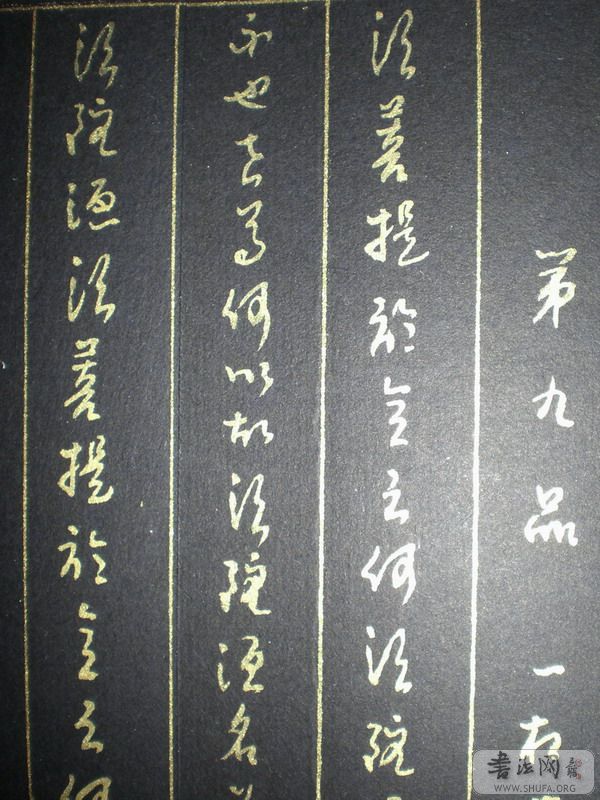 第九品 一相
須菩提於意云何須陀
不也世尊何以故須陀洹名
須陀洹須菩提於意云何
書法网
WWW.SHUFA.ORG